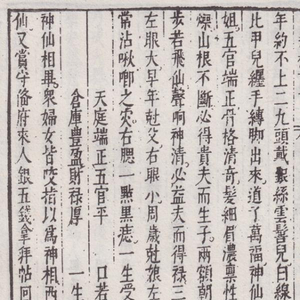 年約不上二九頭戴銀絲雲髻兒白線
比甲兒纏手縛脚出來道了萬福神仙
姐五官端正骨格清奇髪細眉濃稟性
傑山根不斷必得貴夫而生子兩額朝
步若飛仙聲响神清必益夫而得祿三
左眼大早年尅父右眼小周歲尅娘左
常沾啾唧之灾右腮一點黑痣一生受
天庭端正五官平 口若
倉庫豐盈財祿厚 一生
神仙相畢衆婦女皆咬指以為神相西
仙又賞守俻府來人銀五錢拿拜帖囘